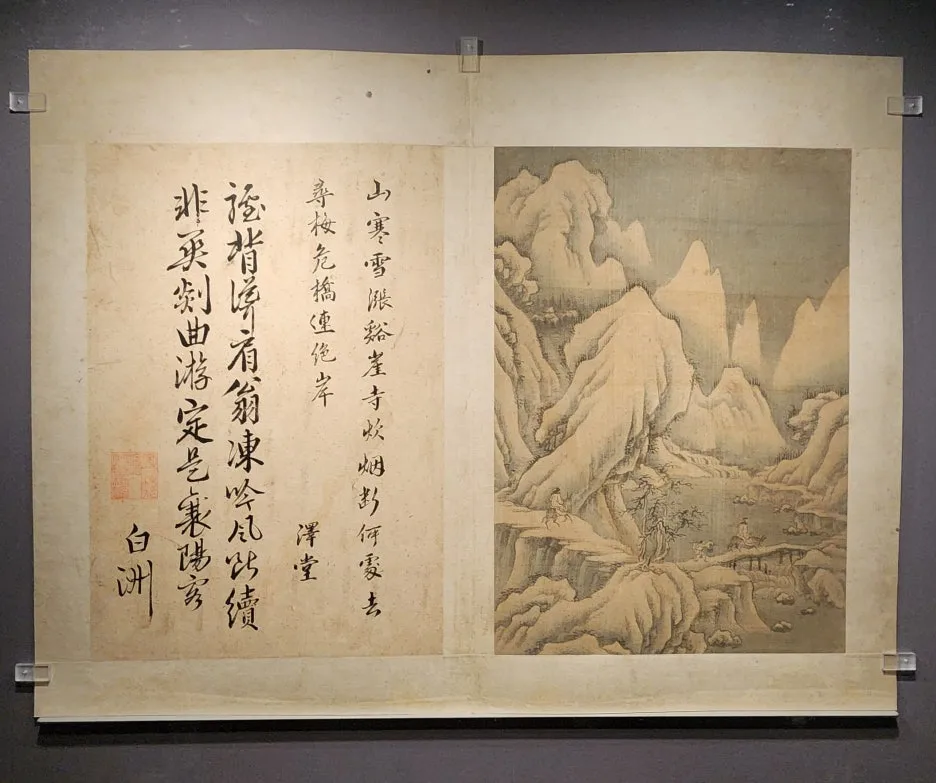 山寒雪漲谿崖寺炊烟斷何處去
尋梅危橋連絕岸
澤堂
背肩翁凍吟續
非剡曲游定是襄陽客
白洲